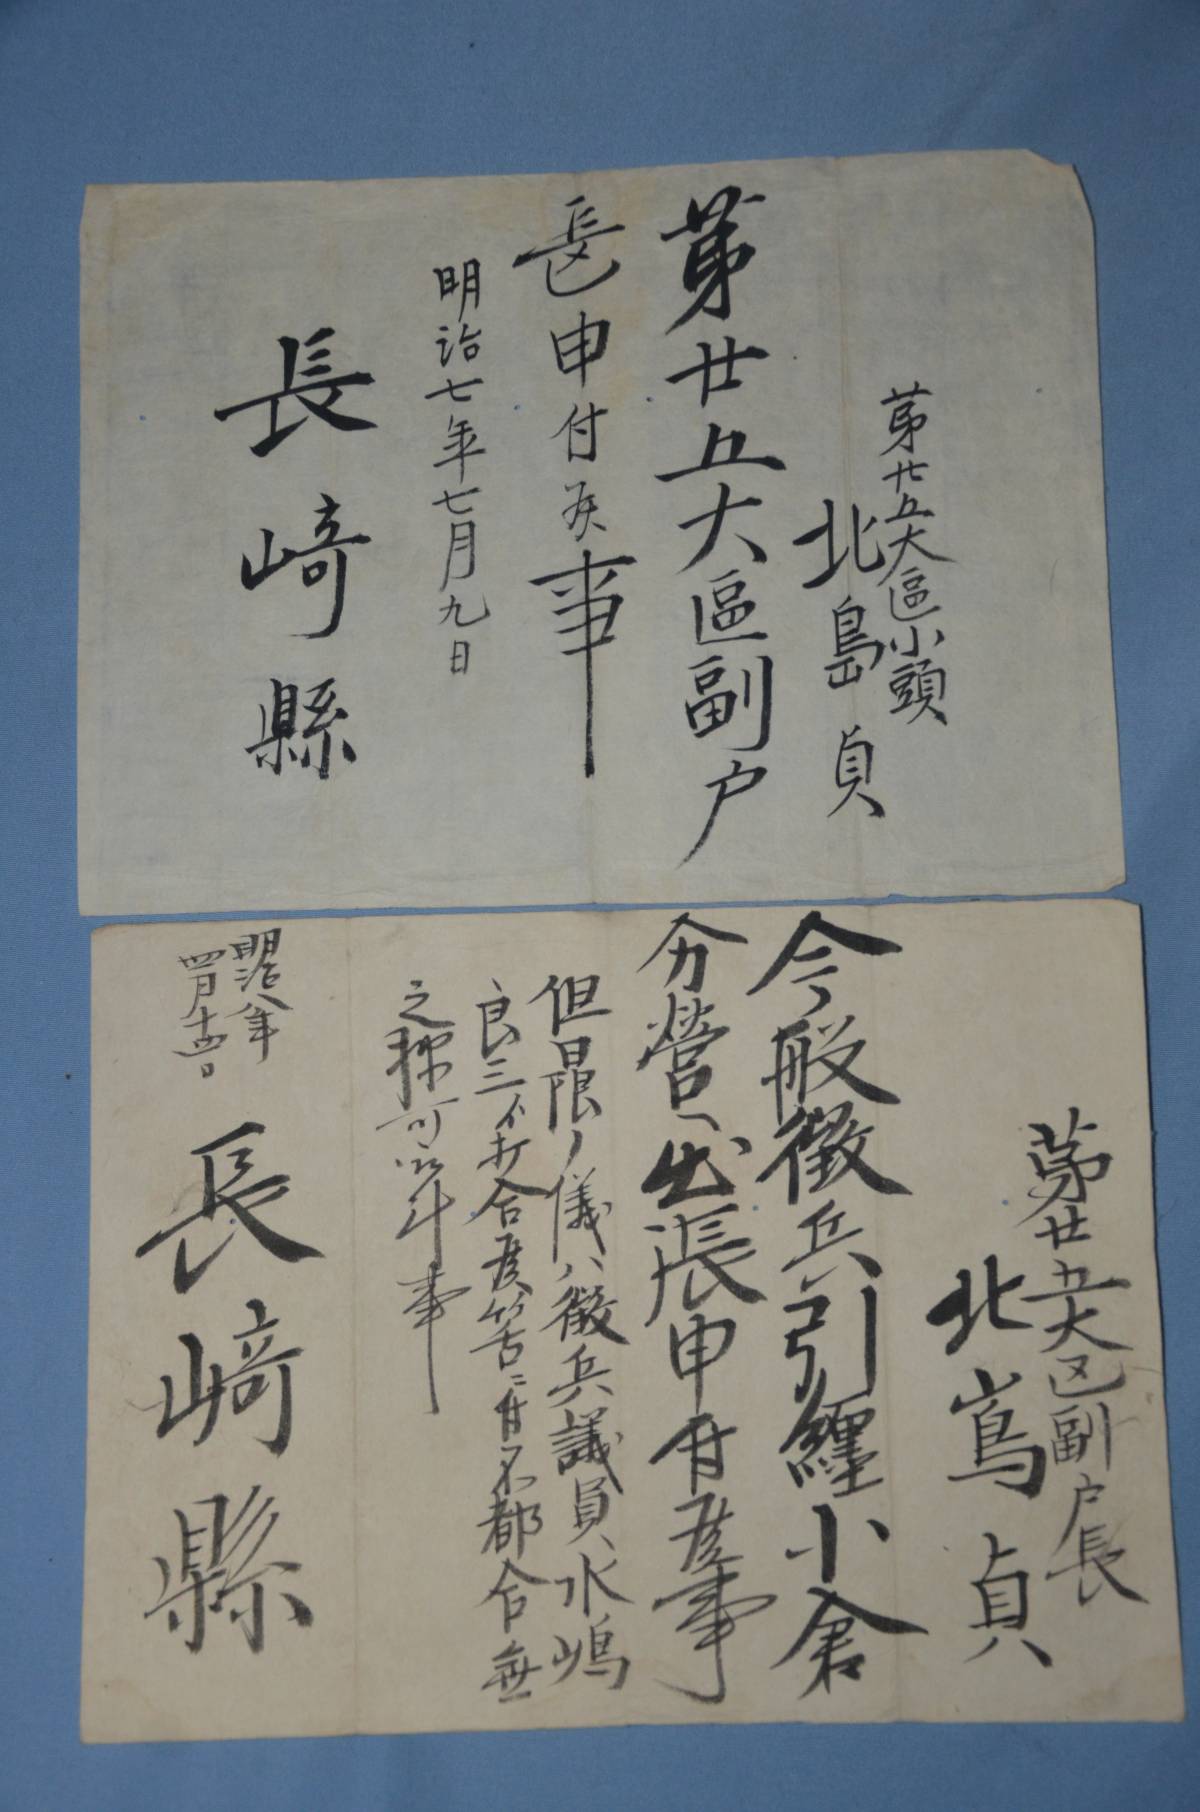 第廿五大區小頭
北島貞
第廿五大區副户
長申付候事
明治七年七月九日
長崎縣
第廿五大区副户長
北嶌貞
今般徴兵引纏小倉
分營へ出張申付候事
但日限ノ儀ハ徴兵議員水嶋
良三ト打合候筈ニ付不都合無
之様可取斗事
明治八年
四月十四日
長崎縣